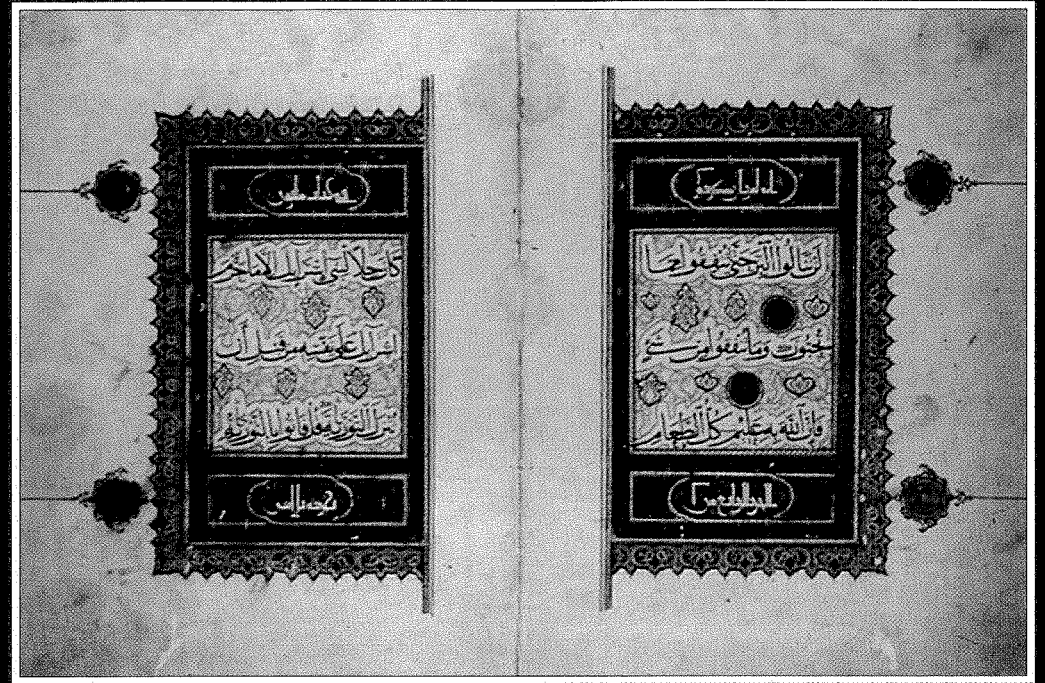 لن تنالوا البر حتى تنفقوا مما
تحبون وما تنفقوا من شيء
فإن الله به عليم كل الطعام
الجزو الرابع من
كان حلا لبني إسرائيل إلا ما حرم
إسرائيل على نفسه من قبل أن
تنزل التورية قل فأتوا بالتورية